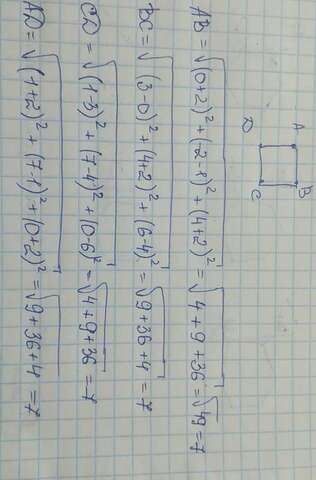 A B
D C
AB = √(0+2)² + (-2-1)² + (4+2)² = √4+9+36 = √49 = 7
BC = √(3-0)² + (4+2)² + (6-4)² = √9+36+4 = 7
CD = √(1-3)² + (7-4)² + (0-6)² = √4+9+36 = 7
AD = √(1+2)² + (7-1)² + (0+2)² = √9+36+4 = 7